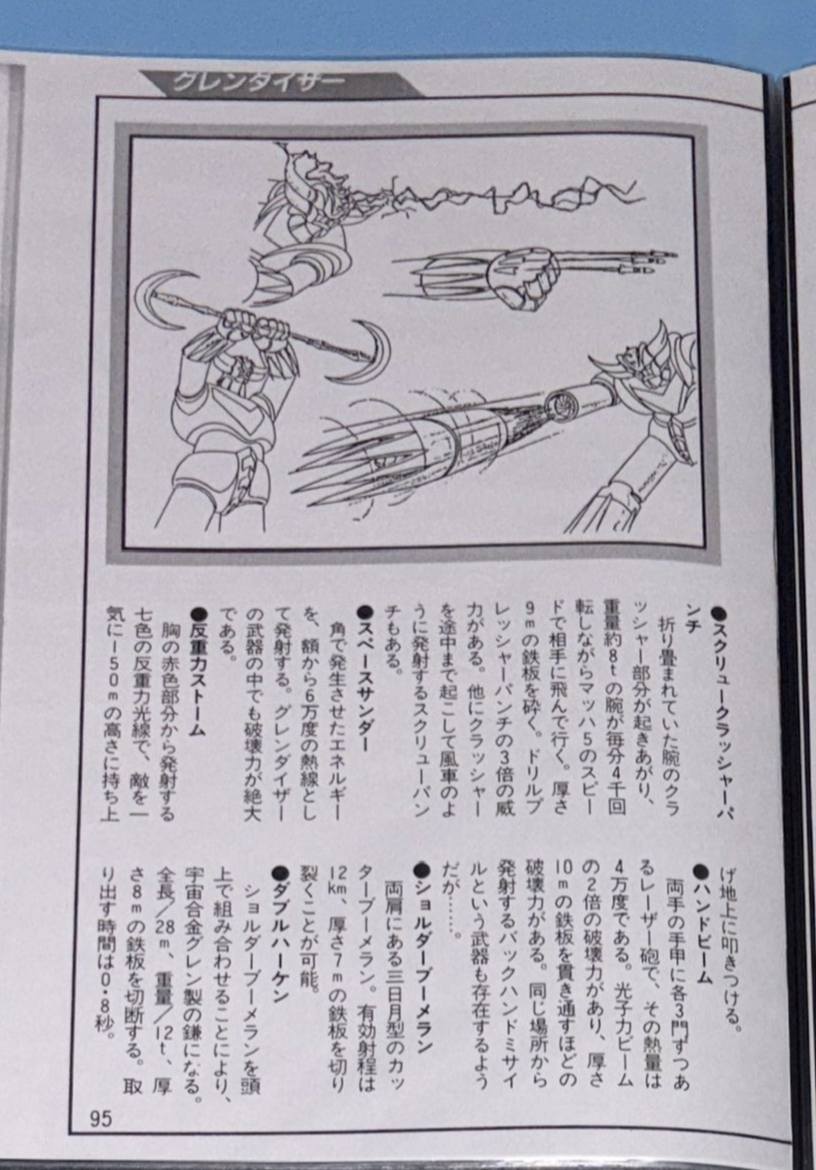 グレンダイザー
●スクリュークラッシャーパ
ンチ
折り畳まれていた腕のクラ
ッシャー部分が起きあがり、
重量約8tの腕が毎分4千回
転しながらマッハ5のスピー
ドで相手に飛んで行く。厚さ
9mの鉄板を砕く。ドリルプ
レッシャーパンチの3倍の威
力がある。他にクラッシャー
を途中まで起こして風車のよ
うに発射するスクリューパン
チもある。
●スペースサンダー
角で発生させたエネルギー
を、額から6万度の熱線とし
て発射する。グレンダイザー
の武器の中でも破壊力が絶大
である。
●反重力ストーム
胸の赤色部分から発射する
七色の反重力光線で、敵を一
気に150mの高さに持ち上
げ地上に叩きつける。
●ハンドビーム
両手の手甲に各3門ずつあ
るレーザー砲で、その熱量は
4万度である。光子力ビーム
の2倍の破壊力があり、厚さ
10mの鉄板を貫き通すほどの
破壊力がある。同じ場所から
発射するバックハンドミサイ
ルという武器も存在するよう
だが……。
●ショルダーブーメラン
両肩にある三日月型のカッ
ターブーメラン。有効射程は
12km、厚さ7mの鉄板を切り
裂くことが可能。
●ダブルハーケン
ショルダーブーメランを頭
上で組み合わせることにより、
宇宙合金グレン製の鎌になる。
全長/28m、重量/12t、厚
さ8mの鉄板を切断する。取
り出す時間は0・8秒。
95